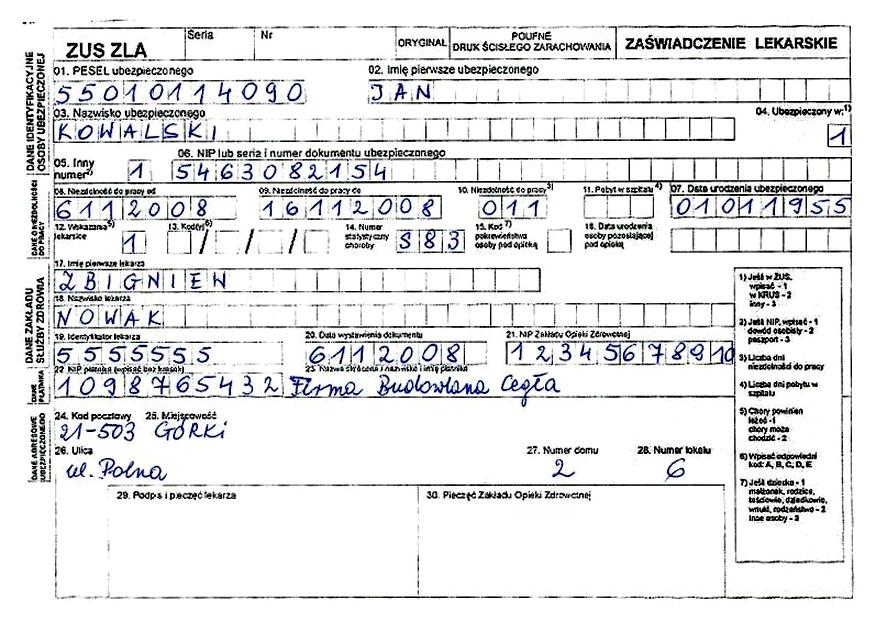 ZUS ZLA Seria Nr ORYGINAŁ POUFNE DRUK ŚCISŁEGO ZARACHOWANIA ZAŚWIADCZENIE LEKARSKIE
DANE IDENTYFIKACYJNE OSOBY UBEZPIECZONEJ
01. PESEL ubezpieczonego 02. Imię pierwsze ubezpieczonego
55010114090 JAN
03. Nazwisko ubezpieczonego 04. Ubezpieczony w:1)
KOWALSKI 1
05. Inny numer2) 1 06. NIP lub seria i numer dokumentu ubezpieczonego
5463082154
08. Niezdolność do pracy od 09. Niezdolność do pracy do 10. Niezdolność do pracy3) 11. Pobyt w szpitalu4) 07. Data urodzenia ubezpieczonego
6112008 16112008 011 01011955
12. Wskazania5) lekarskie 1 13. Kod(y)6) / / / 14. Numer statystyczny choroby S83 15. Kod7) pokrewieństwa osoby pod opieką 16. Data urodzenia osoby pozostającej pod opieką
DANE ZAKŁADU SŁUŻBY ZDROWIA
17. Imię pierwsze lekarza
ZBIGNIEW
18. Nazwisko lekarza
NOWAK
19. Identyfikator lekarza 20. Data wystawienia dokumentu 21. NIP Zakładu Opieki Zdrowotnej
5555555 6112008 12345678910
DANE PŁATNIKA
22. NIP płatnika (wpisać bez kresek) 23. Nazwa skrócona / nazwisko i imię płatnika
1098765432 Firma Budowlana Cegła
DANE ADRESOWE UBEZPIECZONEGO
24. Kod pocztowy 25. Miejscowość
21-503 GÓRKI
26. Ulica 27. Numer domu 28. Numer lokalu
ul. Polna 2 6
29. Podpis i pieczęć lekarza 30. Pieczęć Zakładu Opieki Zdrowotnej
1) Jeśli w ZUS,
wpisać - 1
w KRUS - 2
inny - 3
2) Jeśli NIP, wpisać - 1
dowód osobisty - 2
paszport - 3
3) Liczba dni
niezdolności do pracy
4) Liczba dni pobytu w
szpitalu
5) Chory powinien
leżeć - 1
chory może
chodzić - 2
6) Wpisać odpowiedni
kod: A, B, C, D, E
7) Jeśli dziecko - 1
małżonek, rodzice,
teściowie, dziadkowie,
wnuki, rodzeństwo - 2
inne osoby - 3